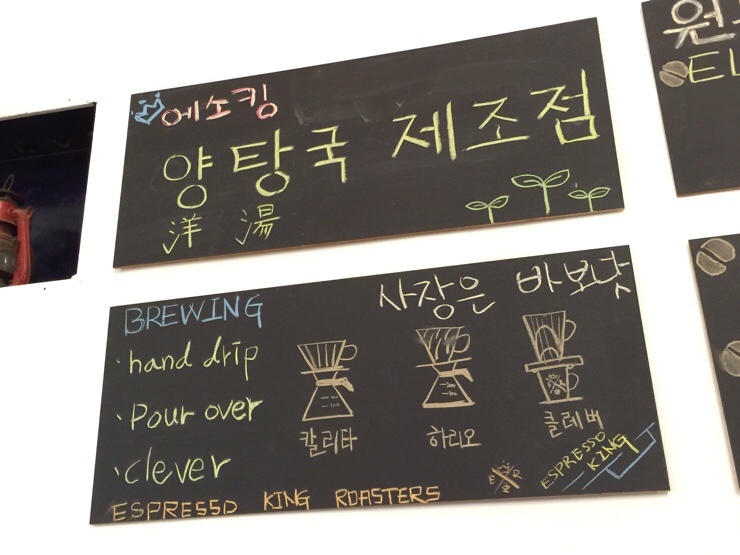 에소킹
양탕국 제조점
洋 湯
원
EL
BREWING
사장은 바보낫
· hand drip
· Pour over
· clever
칼리타
하리오
클레버
ESPRESSO KING
ESPRESSO KING ROASTERS